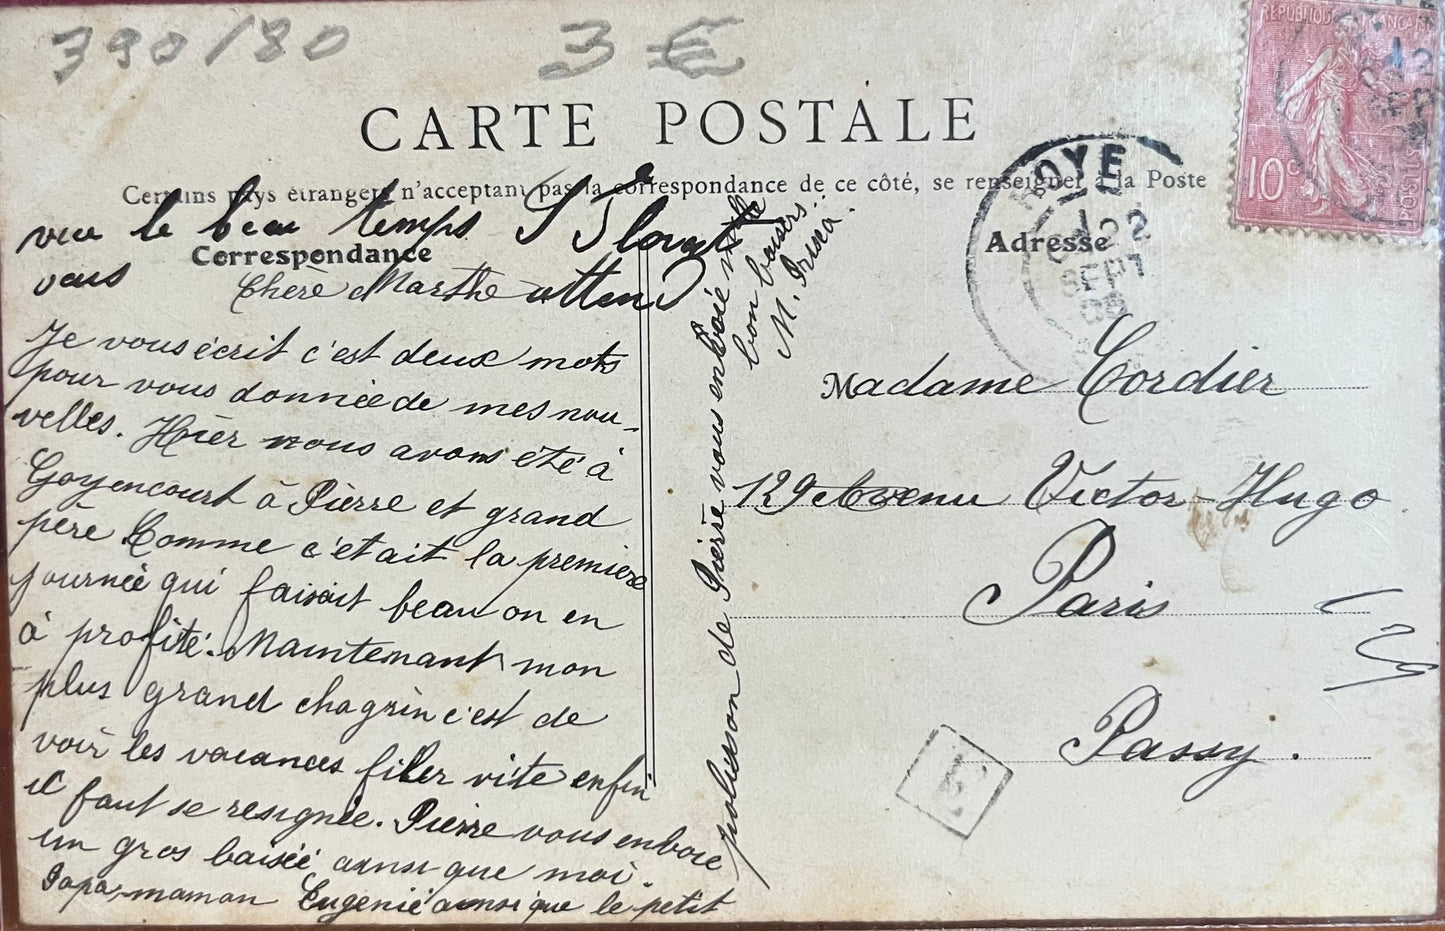 390/80
3 €
CARTE POSTALE
Certains pays étrangers n'acceptant pas la correspondance de ce côté, se renseigner à la Poste
Correspondance
Adresse
vu le beau temps
vous
Chère Marthe
Je vous écrit c'est deux mots
pour vous donnée de mes nou-
velles. Hier nous avons été à
Goyencourt à Pierre et grand
père Comme c'était la première
journée qui faisait beau on en
à profité. Maintenant mon
plus grand chagrin c'est de
voir les vacances filer vite enfin
il faut se resignée. Pierre vous enboie
un gros baisée ainsi que moi.
Papa, maman Eugenie ainsi que le petit
polisson de Pierre vous enboie mille
bon baisers.
M.
Madame Cordier
129 Avenu Victor-Hugo
Paris
Passy.
ROYE
22
SEPT
REPUBLIQUE FRANÇAISE
10 c
POSTES
12
SEPT
E